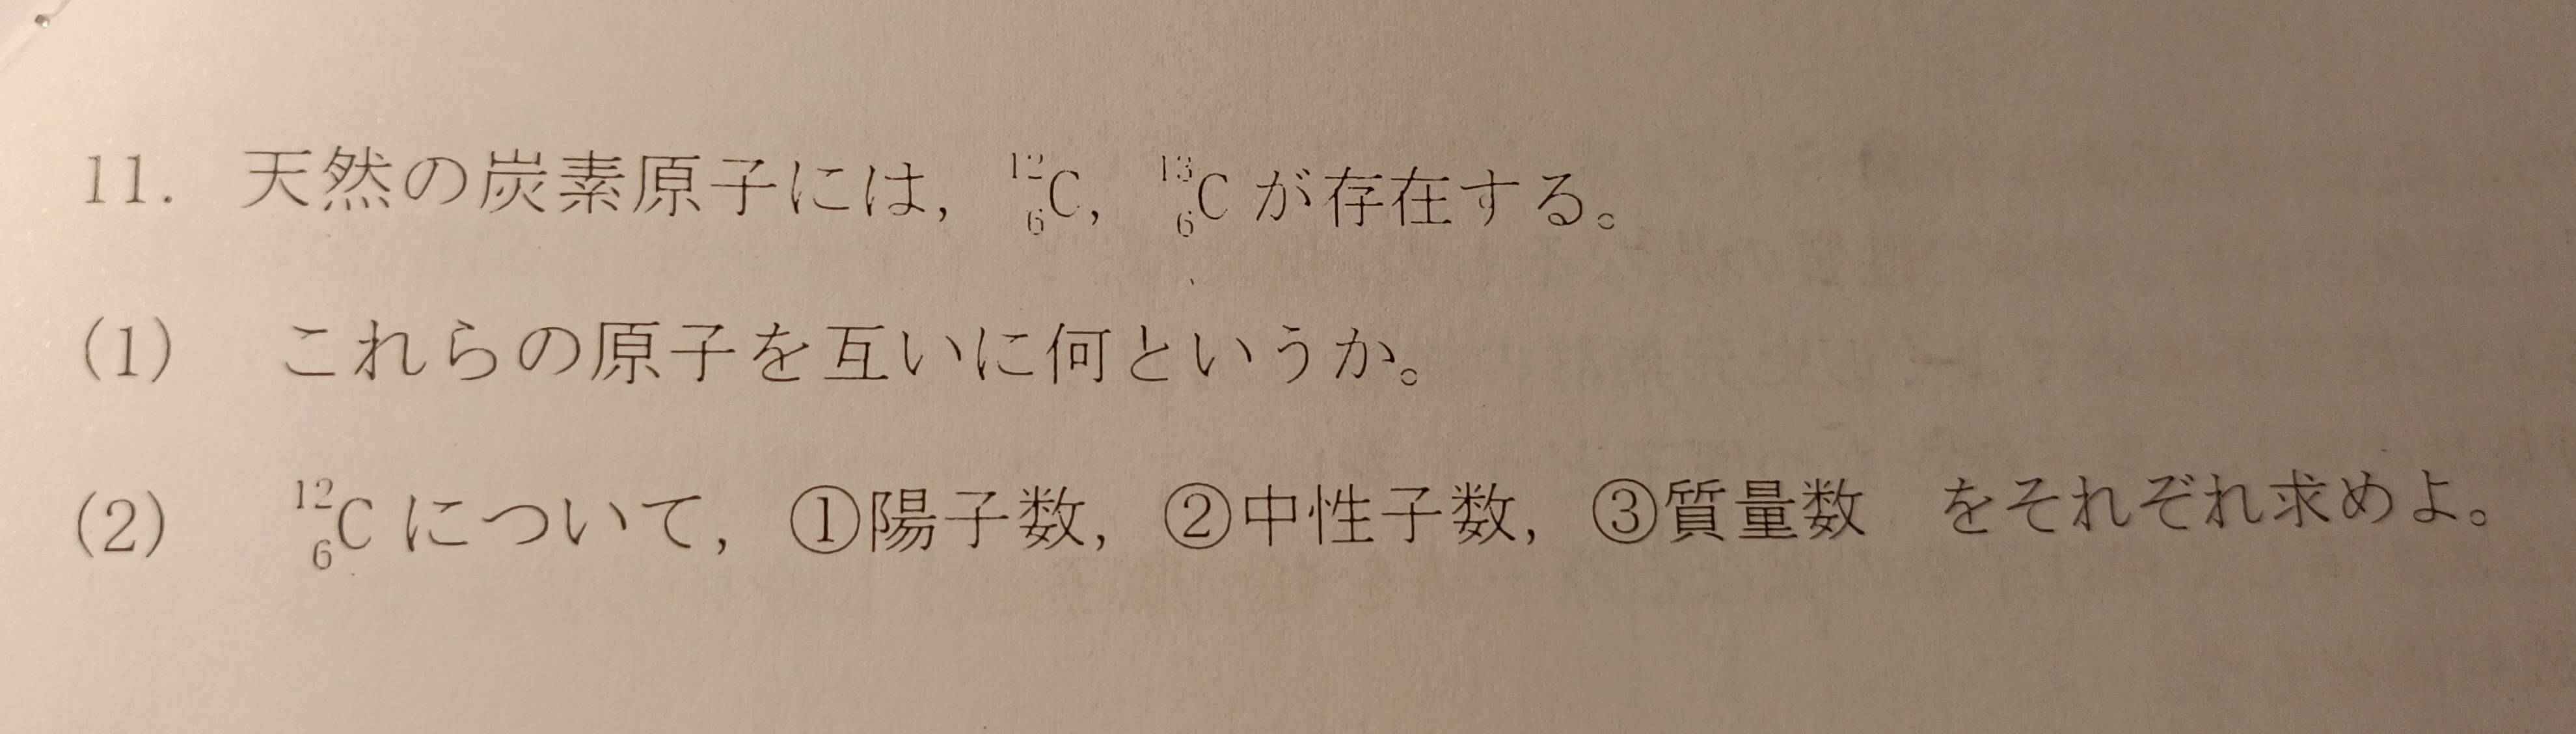 11. 天然の炭素原子には, ¹²₆C, ¹³₆C が存在する。
(1) これらの原子を互いに何というか。
(2) ¹²₆C について, ①陽子数, ②中性子数, ③質量数 をそれぞれ求めよ。